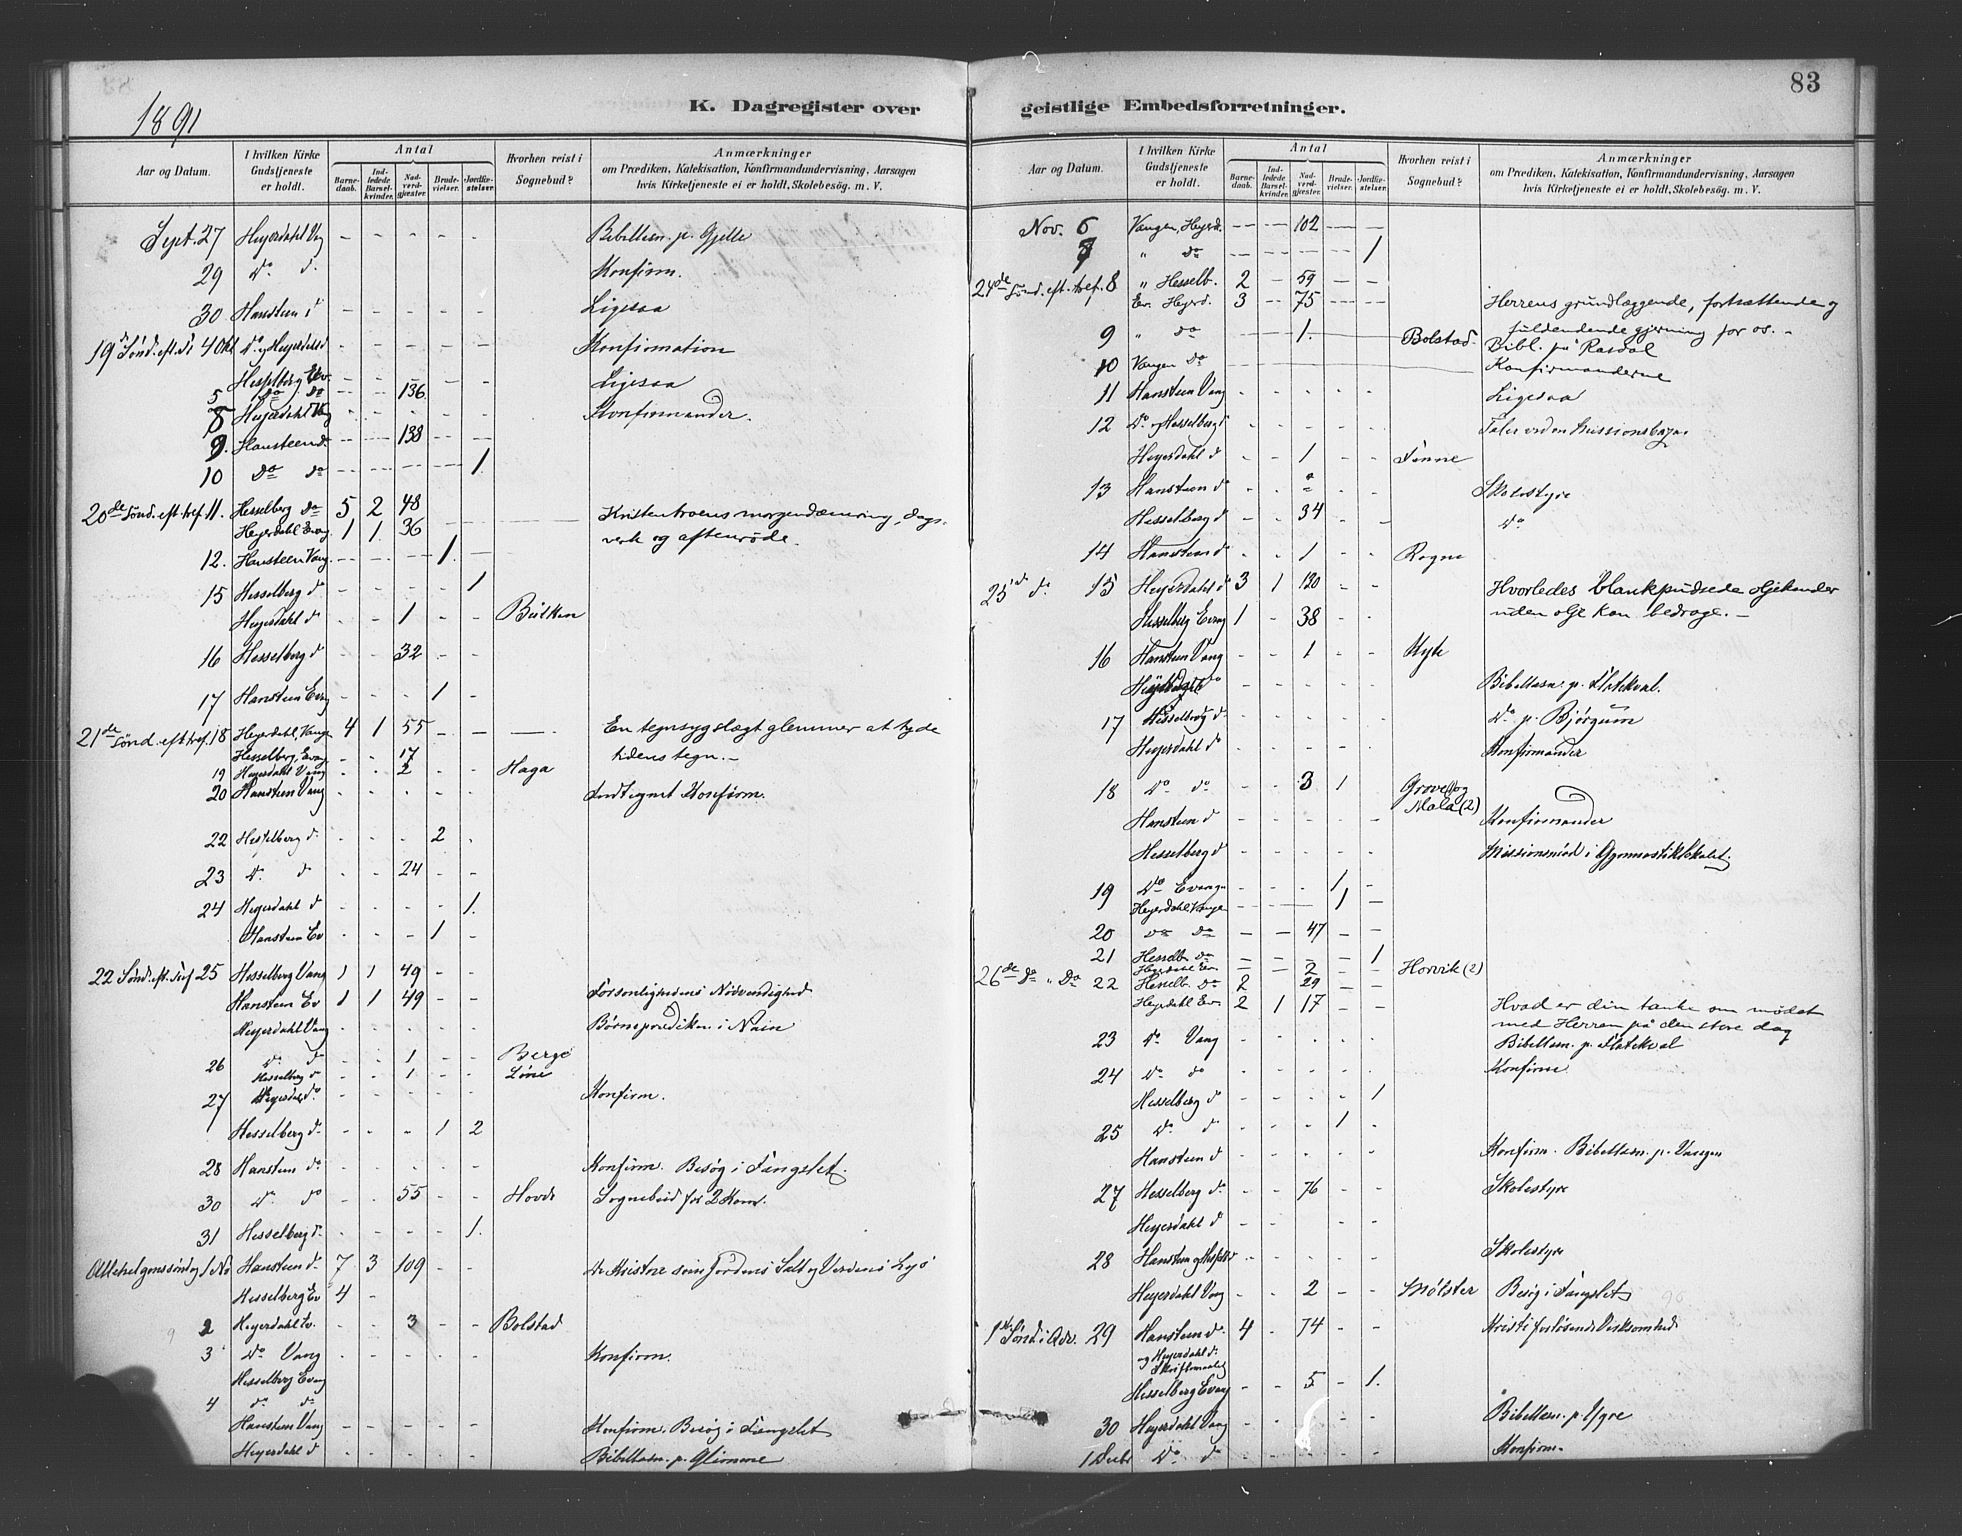 1891
K. Dagregister over
Aar og Datum.
I hvilken Kirke Gudstjeneste er holdt.
Antal
Barnedaab.
Indledede Barselkvinder.
Nadverdgjester.
Brudevielser.
Jordfæstelser.
Hvorhen reist i Sognebud?
Anmærkninger
om Prædiken, Katekisation, Konfirmandundervisning, Aarsagen
hvis Kirketjeneste ei er holdt, Skolebesøg. m. V.
Sept. 27 Heyerdahl Vang - - - - - Bibellæsn. p. Gjelle
29 do d. - - - - - Konfirm.
30 Hansteen d - - - - - Ligesaa
19de Sønd. eft. 4 Okt do og Heyerdahl - - - - - Konfirmation
Hesselberg Ev. - - - - - Ligesaa
5 do do - - 136
8 Heyerdahl Vang - - - - - Konfirmander.
9. Hansteen d. - - 138 - -
10 do do - - - - 1.
20de Sønd. eft. tref. 11. Hesselberg do 5 2 48 Kristentroens morgendæmring, dags-
Heyerdahl Evang. 1 1. 36 verk og aftenrøde.
12. Hansteen Vang. - - - 1. -
15 Hesselberg do - - - - 1
Heyerdahl do - - 1 - - Bulken
16 Hesselberg d - - 32 - -
17 Hansteen Evang - - - 1 -
21de Sønd. eft. tref. 18 Heyerdahl, Vangen 4 1 55 - - En tegnsyg slægt glemmer at tyde
Hesselberg, Evang - - 17 tidens tegn.-
19 Heyerdahl Vang - - 2 - - Haga
20 Hansteen Vang - - - - - Indtegnet Konfirm.
22 Hesselberg d. - - - 2 -
23 do d - - 24 - -
24 Heyerdahl d - - - - 1.
Hansteen Ev - - - 1 -
22 Sønd. eft. Tref 25 Hesselberg Vang 1 1 49 - -
Hansteen Ev 1 1 49 - - Forsonlighedens Nødvendighed
Heyerdahl Vang - - - - - Børneprædiken i Nain
26 do d - - 1 - - Berge
Hesselberg d - - 1 - - Løne
27 Heyerdahl do - - - - - Konfirm.
Hesselberg d. - - - 1 2
28 Hansteen do - - - - - Konfirm. Besøg i Fængslet.
30 do do - - 55 - - Hovde Sognebud for 2 Kom.
31 Hesselberg d. - - - - 1.
Allehelgenssøndag 1 No Hansteen d. 7 3 109 - - De Kristne som Jordens Salt og Verdens Lys
Hesselberg Ev 4 -
2 Heyerdahl Ev. - - 3 - - Bolstad
3 do Vang - - - - - Konfirm.
Hesselberg Evang
4 do do
Hansteen Vang - - - - - Konfirm. Besøg i Fængslet
Heyerdahl d - - - - - Bibellæsn. p. Glimme
83
geistlige Embedsforretninger.
Aar og Datum.
I hvilken Kirke Gudstjeneste er holdt.
Antal
Barnedaab.
Indledede Barselkvinder.
Nadverdgjester.
Brudevielser.
Jordfæstelser.
Hvorhen reist i Sognebud?
Anmærkninger
om Prædiken, Katekisation, Konfirmandundervisning, Aarsagen
hvis Kirketjeneste ei er holdt, Skolebesøg. m. V.
Nov. 6 Vangen, Heyrd. - - 102 - -
7 " do - - - - 1
24de Sønd. eft. tref. 8 " Hesselb. 2 - 59 - -
Ev. Heyrd. 3 - 75 - - Herrens grundlæggende, fortsættende og
fuldendende gjerning for os. -
9 " do - - 1. - - Bolstad. Bibl. på Rasdal
10 Vangen do Konfirmanderne
11 Hansteen Vang - - - - - Ligesaa
12 do og Hesselberg d - - - - - Taler ved en Missionsbazar
Heyerdahl d - - 1 - - Finne
13 Hansteen d - - - - - Skolestyre
Hesselberg d - - 34 - - do
14 Hansteen d - - 1 - - Rogne
25de d. 15 Heyerdahl d 3 1 120 - - Hvorledes blankpudsede oljekander
Hesselberg Evang 1 - 38 - - uden olje kan bedrage. -
16 Hansteen Vang - - 1 - - Kyte
do - - - - - Bibellæsn. p. Flatekval.
17 Hesselberg d. - - - - - do p. Bjørgum
Heyerdahl d - - - - - Konfirmander
18 do do - - 3 1 - Grove(1) og
Mala (2)
Hansteen d - - - - - Konfirmander
Hesselberg d - - - - - Missionsmöd i Gymnastiklokalet.
19 do Evang. - - - 1 -
Heyerdahl, Vangen - - - 1 -
20 do do - - 47 - -
21 Hesselb. do - - - - 1
Heyerdahl Ev. - - 2 - - Horvik (2)
26de do " do 22 Hesselb. do 2 29 - -
Heyerdahl Ev. 2 1 17 - - Hvad er din tanke om mødet
med Herren på den store dag
23 do Vang - - - - - Bibellæsn. p. Flatekval
24 do do - - - - - Konfirm
Hesselberg d - - - - 1
25 do d - - - 1 -
Hansteen d - - - - - Konfirm. Bibellæsn. p. Vangen
27 Hesselberg d. - - 76 - - Skolestyre
Heyerdahl d - - - - -
28 Hansteen og Hesselb - - - - - Skolestyre
Heyerdahl Vang - - 2 - - Mølster Besøg i Fængslet
1ste Sønd. i Adv. 29 Hansteen d. 4 - 74 - - Kristi forløsende Virksomhed
og Heyerdahl d.
Skriftemaalet
Hesselberg Evang - - 5 - 1.
30 Heyerdahl Vang - - - - - Bibellæsn. p. Ygre
1 Decbr do d - - - - - Konfirm.